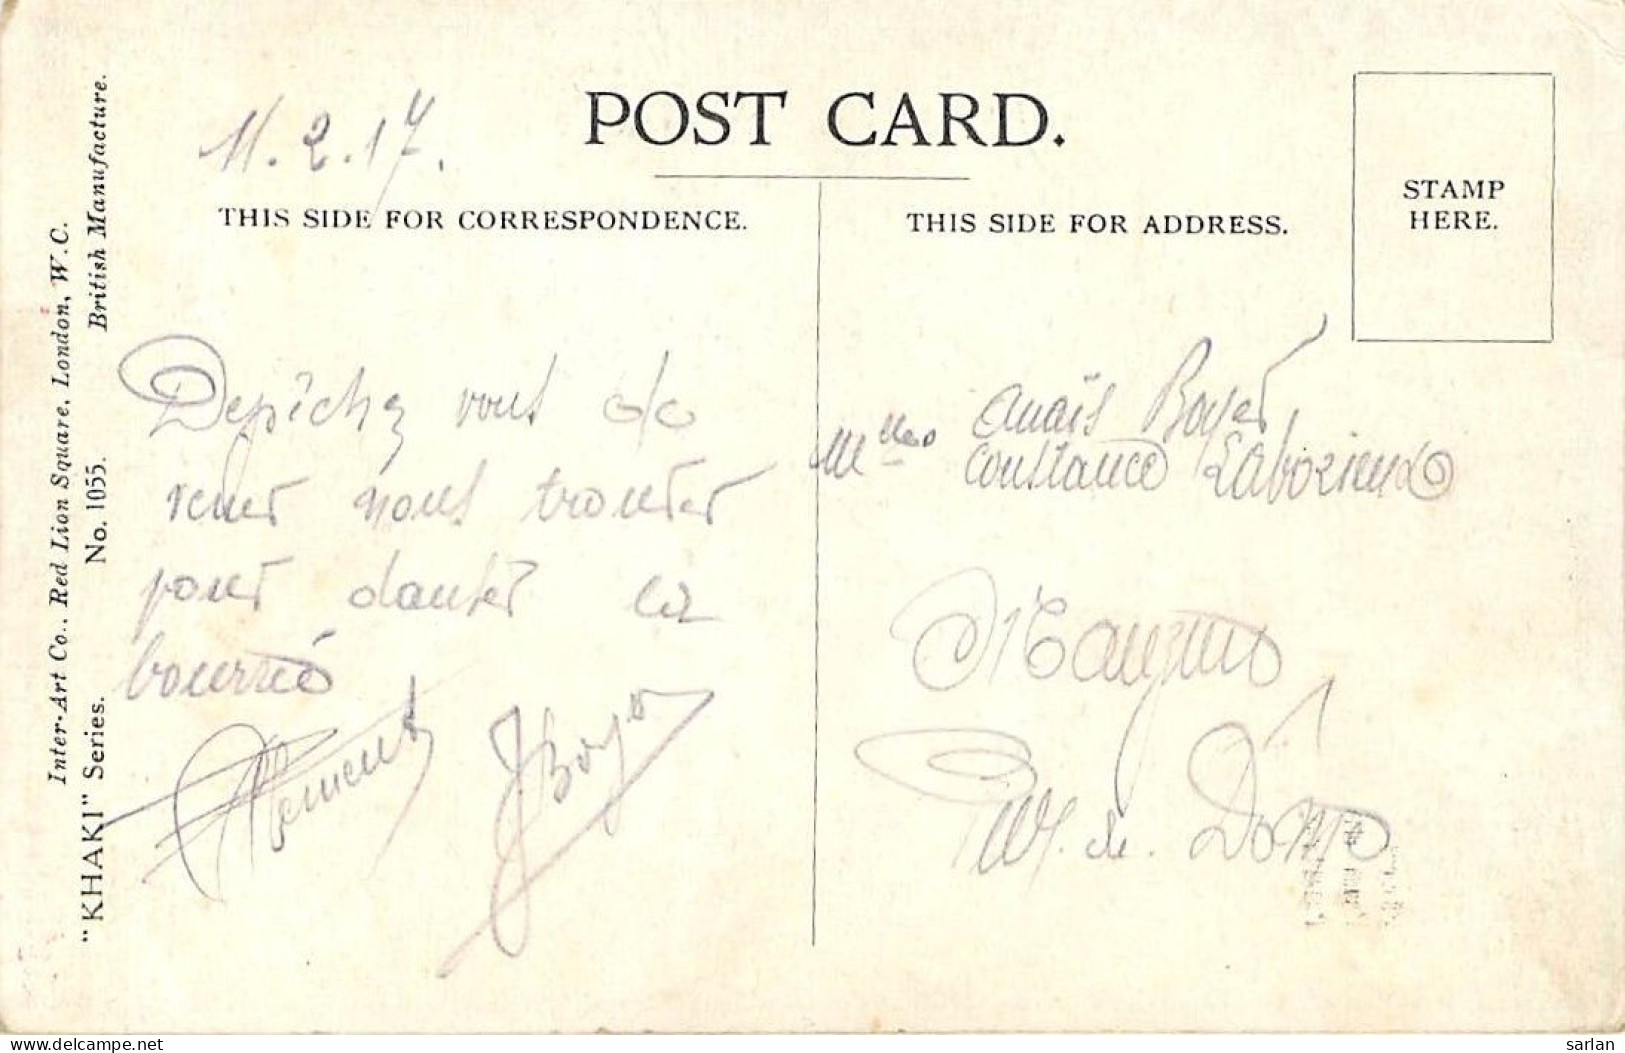 POST CARD.
11.2.17.
THIS SIDE FOR CORRESPONDENCE.
Depêchez vous de
venir nous trouver
pour danser la
bourrée
Clement JBoyer
THIS SIDE FOR ADDRESS.
STAMP
HERE.
Anaïs Boyer
Mlles
Constance
P. de Dôme
Inter-Art Co., Red Lion Square, London, W.C.
British Manufacture.
"KHAKI" Series. No. 1055.
www.delcampe.net
sarlan